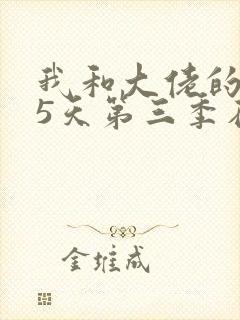 我和大佬的
5天第三季在
金维成